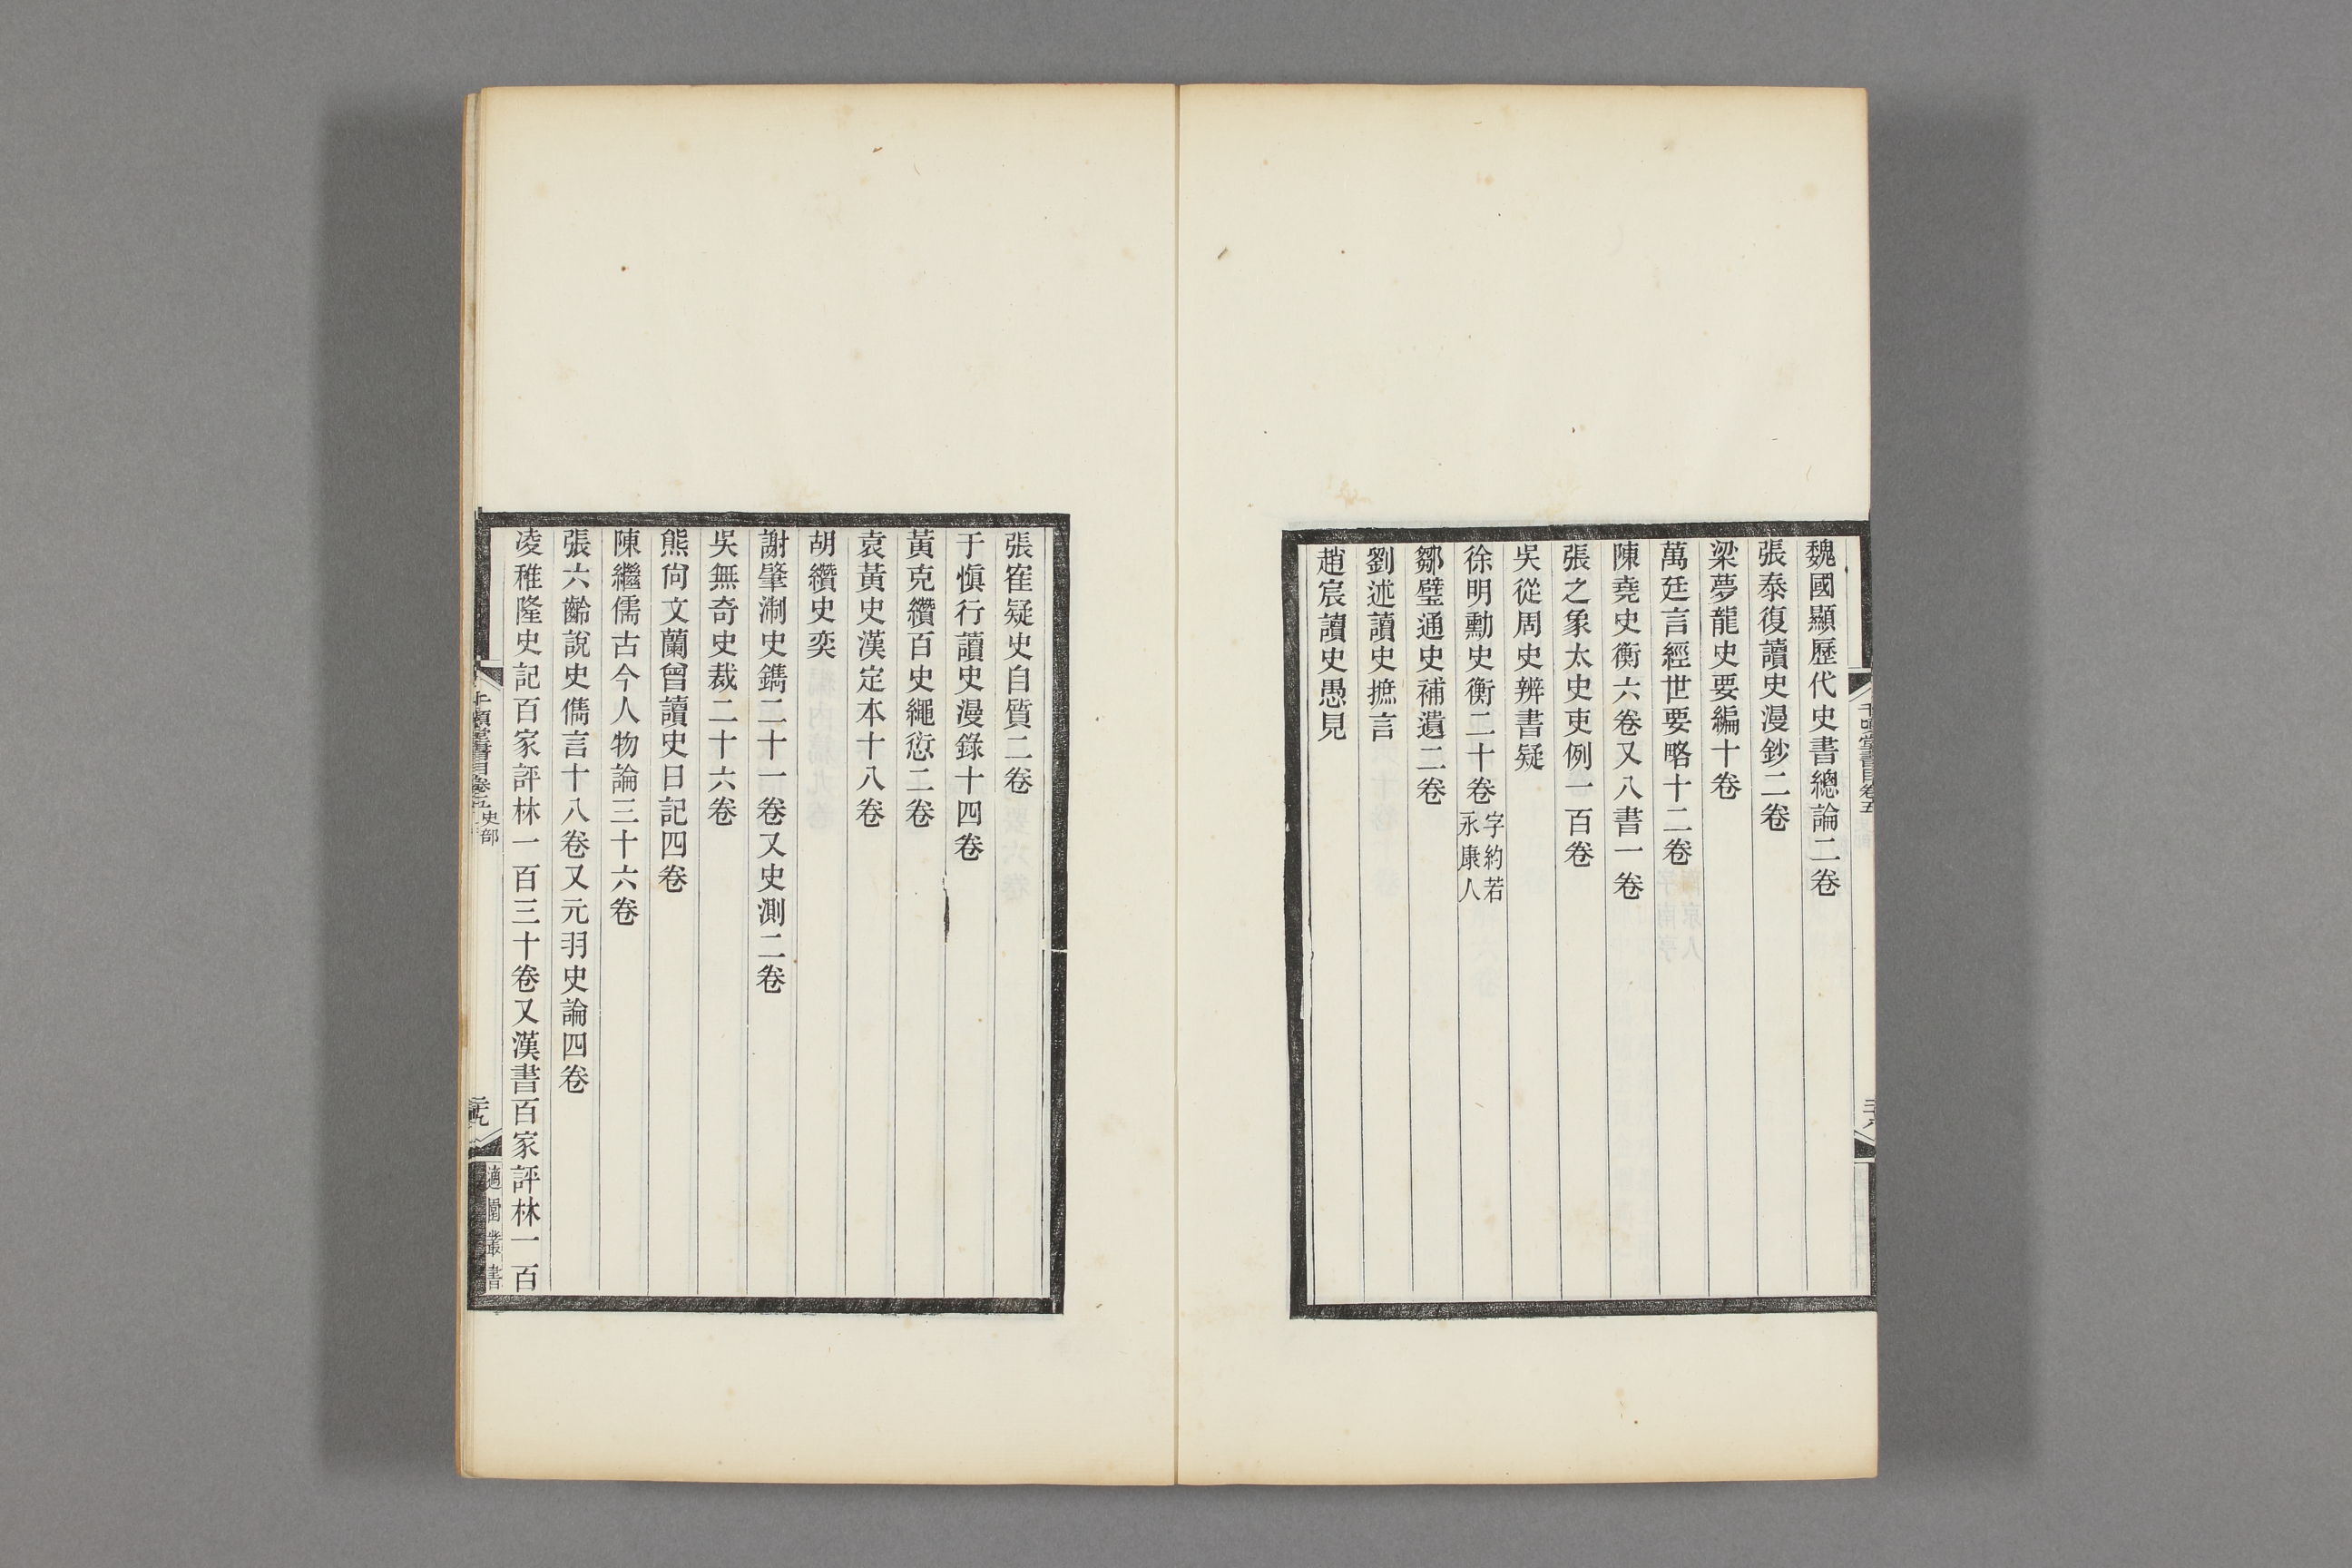 魏國顯歷代史書總論二卷
張泰復讀史漫鈔二卷
梁夢龍史要編十卷
萬廷言經世要略十二卷
陳堯史衡六卷又八書一卷
張之象太史史例一百卷
吳從周史辨書疑
徐明勳史衡二十卷字約若永康人
鄒璧通史補遺二卷
劉述讀史摭言
趙宸讀史愚見
張寉疑史自質二卷
于慎行讀史漫錄十四卷
黃克纘百史繩愆二卷
袁黃史漢定本十八卷
胡纘史奕
謝肇淛史鐫二十一卷又史測二卷
吳無奇史裁二十六卷
熊尙文蘭曾讀史日記四卷
陳繼儒古今人物論三十六卷
張六齡說史儁言十八卷又元羽史論四卷
凌稚隆史記百家評林一百三十卷又漢書百家評林一百
千頃堂書目卷五 史部
二十九
適園叢書